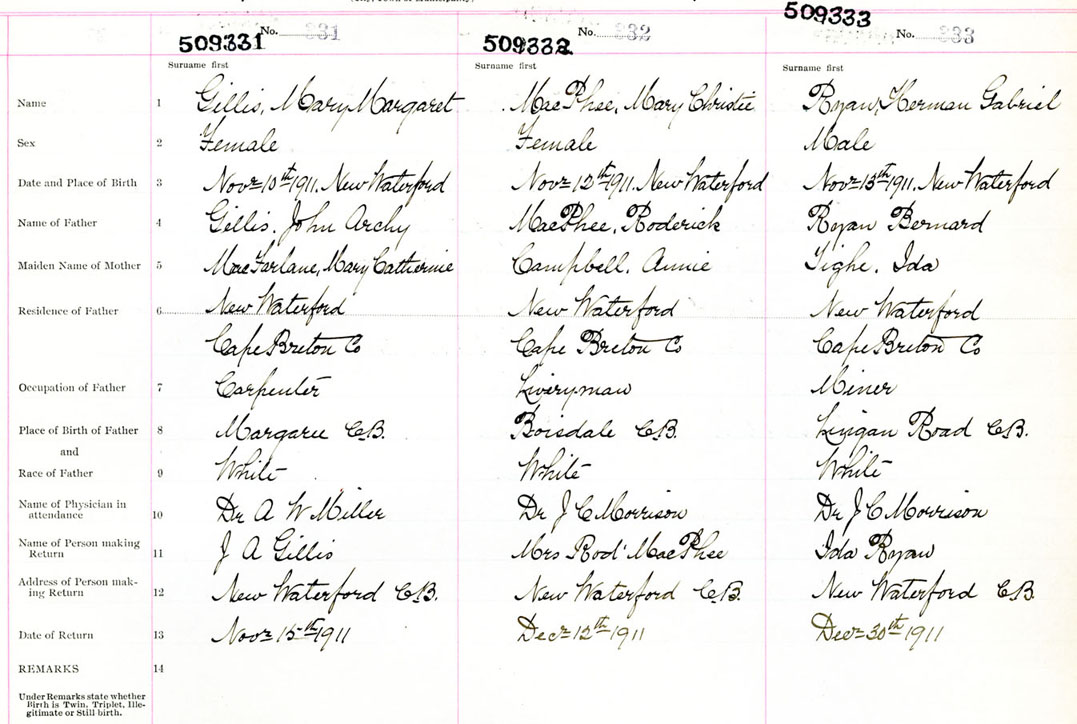 (City, Town or Municipality)
509331 No. 331 509332 No. 332 509333 No. 333
Surname first Surname first Surname first
Name 1 Gillis, Mary Margaret MacPhee, Mary Christie Ryan, Herman Gabriel
Sex 2 Female Female Male
Date and Place of Birth 3 Novr 10th 1911. New Waterford Novr 12th 1911. New Waterford Novr 13th 1911. New Waterford
Name of Father 4 Gillis, John Archy MacPhee, Roderick Ryan Bernard
Maiden Name of Mother 5 MacFarlane, Mary Catherine Campbell, Annie Tighe, Ida
Residence of Father 6 New Waterford New Waterford New Waterford
Cape Breton Co Cape Breton Co Cape Breton Co
Occupation of Father 7 Carpenter Liveryman Miner
Place of Birth of Father 8 Margaree C.B. Boisdale C.B. Lingan Road C.B.
and
Race of Father 9 White White White
Name of Physician in
attendance 10 Dr A W Miller Dr J C Morrison Dr J C Morrison
Name of Person making
Return 11 J A Gillis Mrs Rod' MacPhee Ida Ryan
Address of Person mak-
ing Return 12 New Waterford C.B. New Waterford C.B. New Waterford C.B.
Date of Return 13 Novr 15th 1911 Decr 12th 1911 Decr 30th 1911
REMARKS 14
Under Remarks state whether
Birth is Twin, Triplet, Ille-
gitimate or Still birth.